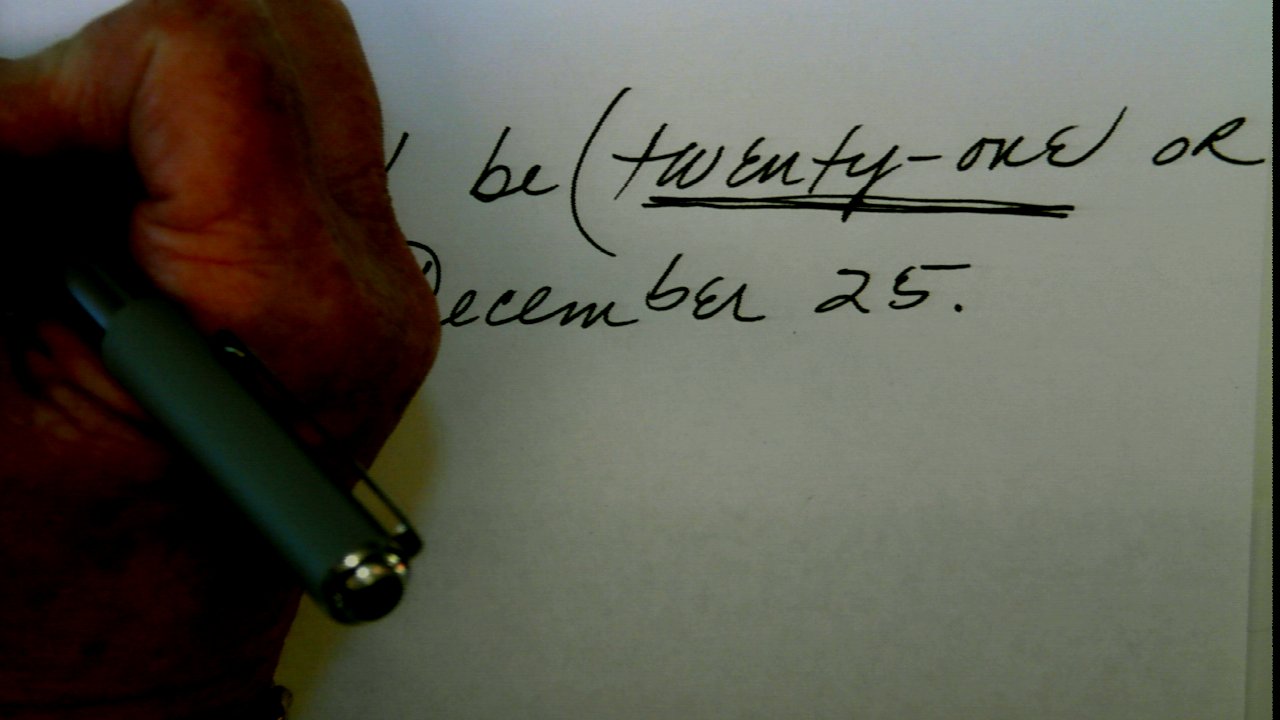 be (twenty-one or
December 25.